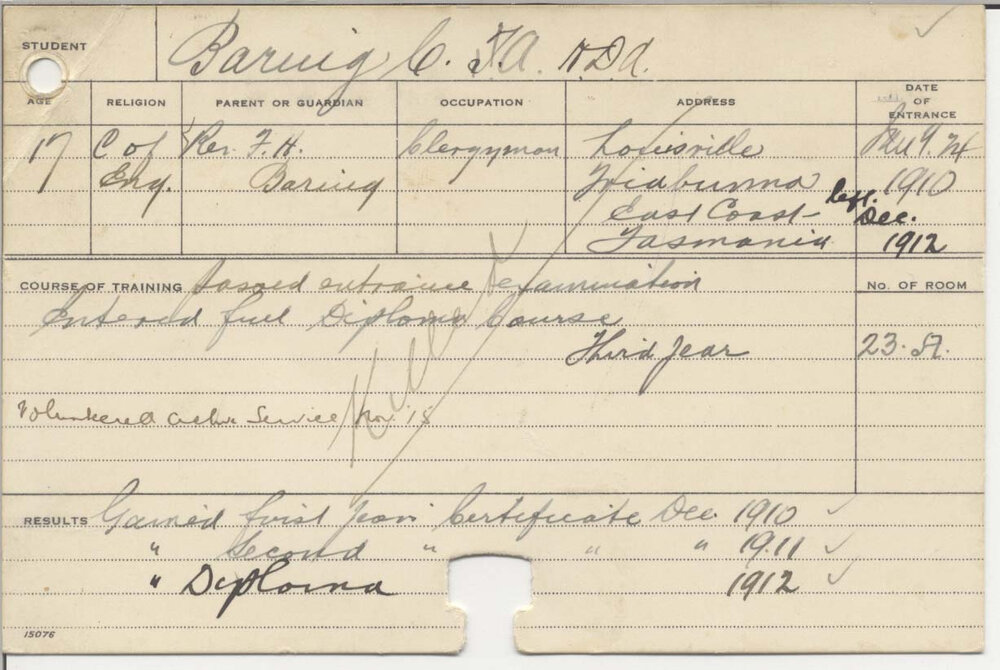 STUDENT
Baring C. F. A. H.D.A.
AGE
RELIGION
PARENT OR GUARDIAN
OCCUPATION
ADDRESS
DATE OF ENTRANCE
17
C of Eng.
Rev. F. H. Baring
Clergyman
Louisville
Triabunna
East Coast
Tasmania
1910
left.
Dec.
1912
COURSE OF TRAINING Passed entrance Examination
Entered full Diploma Course
Third Year
No. OF ROOM
23.
Volunteered Active Service Nov. 15
Killed
RESULTS Gained First Year Certificate Dec 1910
" Second " " " 1911
" Diploma 1912
15076